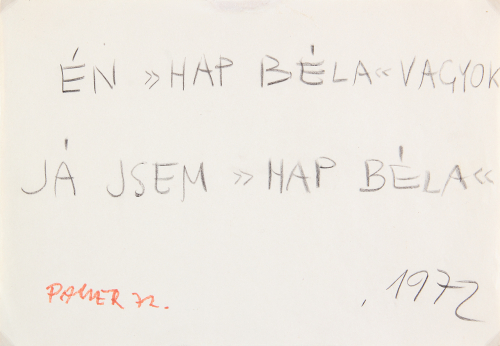 ÉN »HAP BÉLA« VAGYOK
JÁ JSEM »HAP BÉLA«
PAUER 72. , 1972